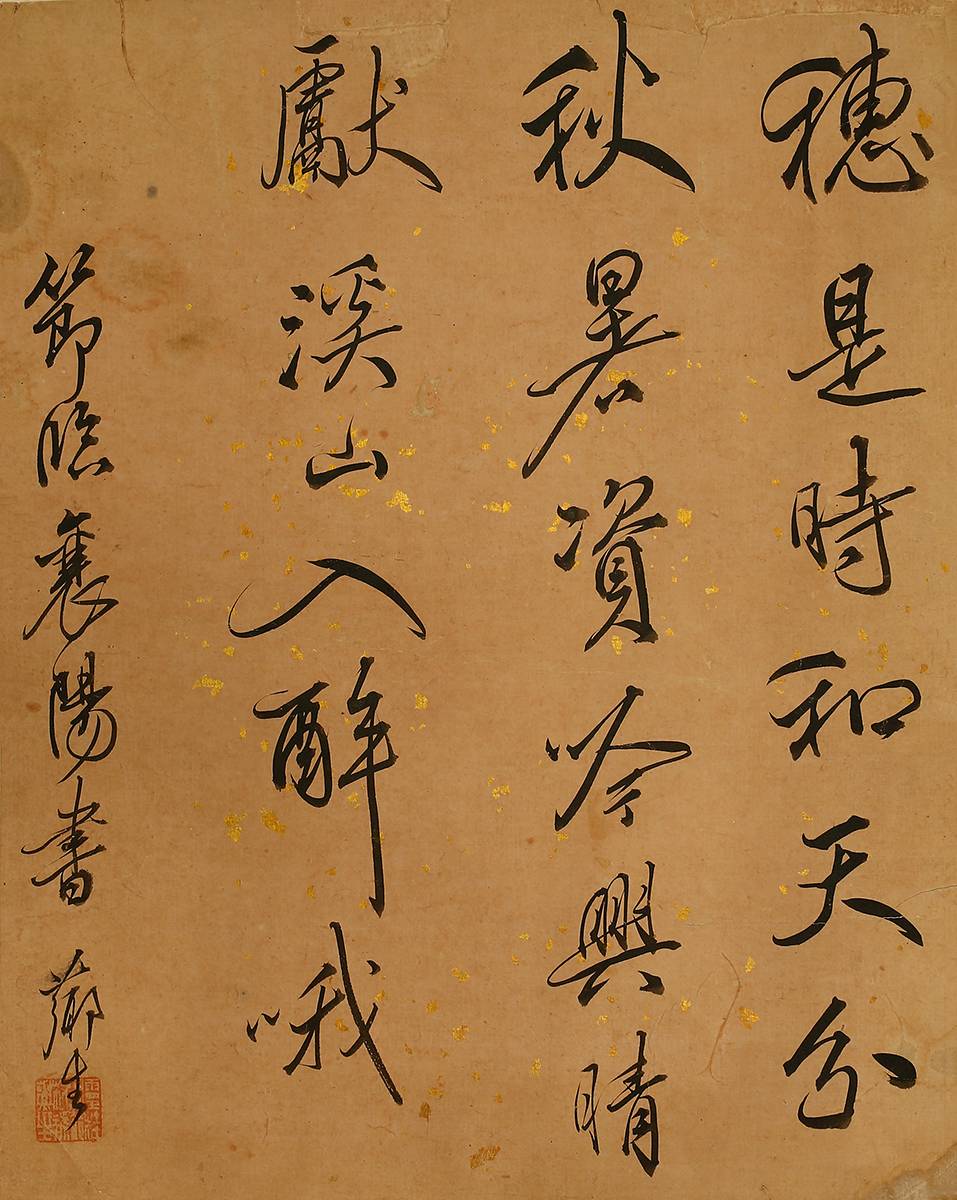 穗是時和天分
秋暑資吟興晴
獻溪山入醉哦
節臨襄陽書 薌生